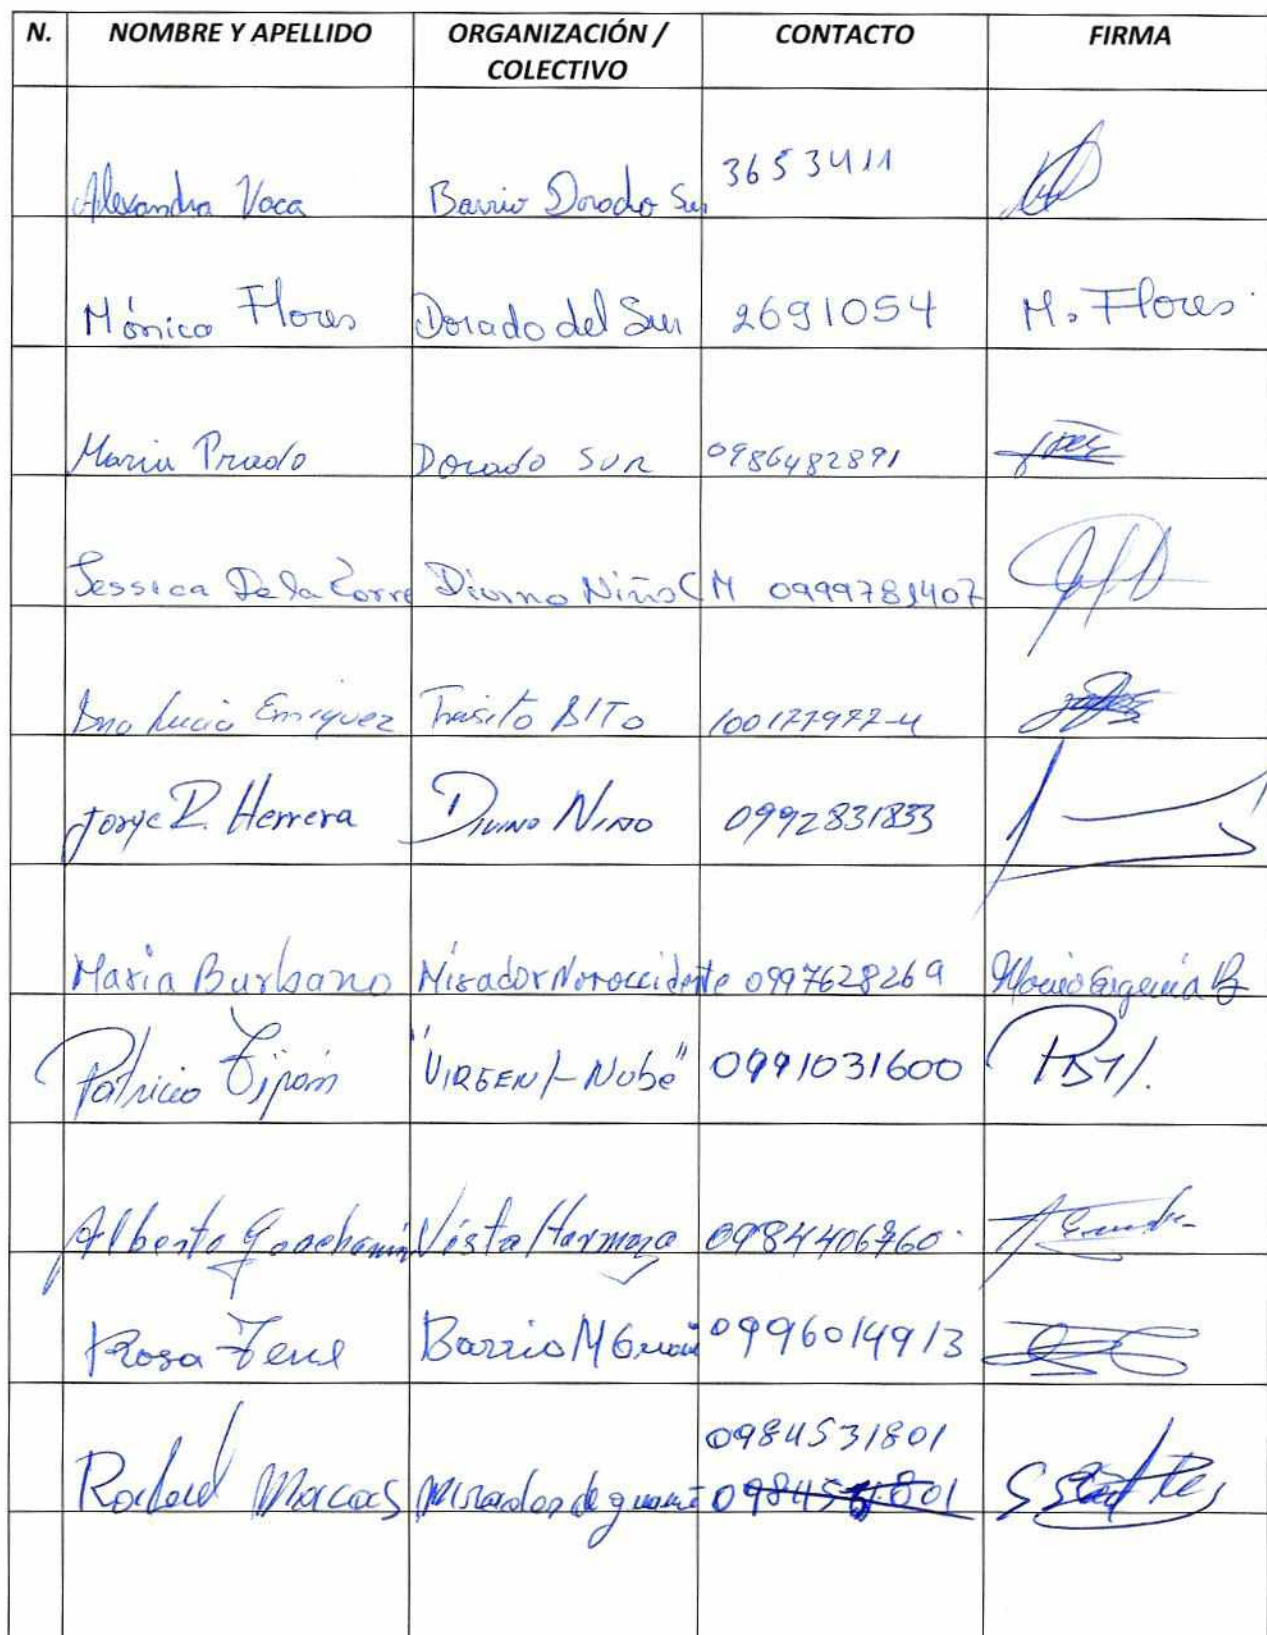 N. NOMBRE Y APELLIDO ORGANIZACIÓN / COLECTIVO CONTACTO FIRMA
Alexandra Vaca Barrio Dorado Sur 3653411
Mónica Flores Dorado del Sur 2691054 M. Flores
Maria Prado Dorado SUR 0986482891
Jessica De la Torre Divino Niño CM 0999781407
Ana Lucia Enriquez 100177977-4
Jorge R. Herrera Divino Nino 0992831833
Maria Burbano Mirador Noroccidente 0997628269 Maria Eugenia B
Patricio Tipán "VIRGEN/- Nube" 0991031600
Alberto Guachamin Vista Hermoza 0984406760
Rosa Tene Barrio M 0996014913
Macas Mirador de 0984531801